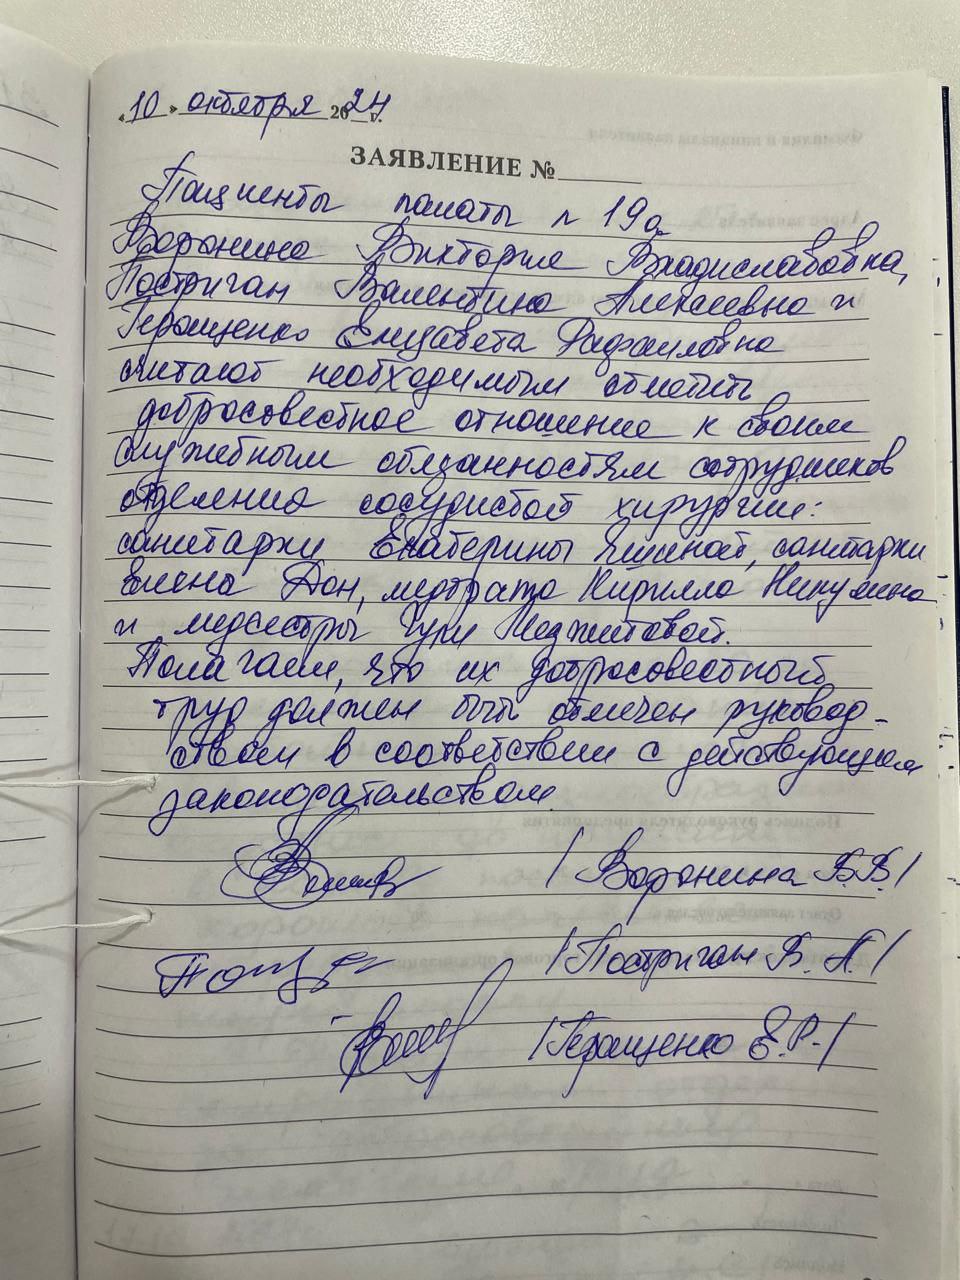 «10» октября 2024 г.
ЗАЯВЛЕНИЕ №
Пациенты палаты n 19а
Воронина Виктория Владиславовна,
Постриган Валентина Алексеевна и
Геращенко Елизавета Рафаиловна
считают необходимым отметить
добросовестное отношение к своим
служебным обязанностям сотрудников
отделения сосудистой хирургии:
санитарки Екатерины санитарки
Елена Дон, медбрата Кирилла Никулина
и медсестры
Полагаем, что их добросовестный
труд должен быть отмечен руковод-
ством в соответствии с действующим
законодательством.
/ Воронина В.В. /
/ Постриган В. А. /
/ Геращенко Е.Р. /